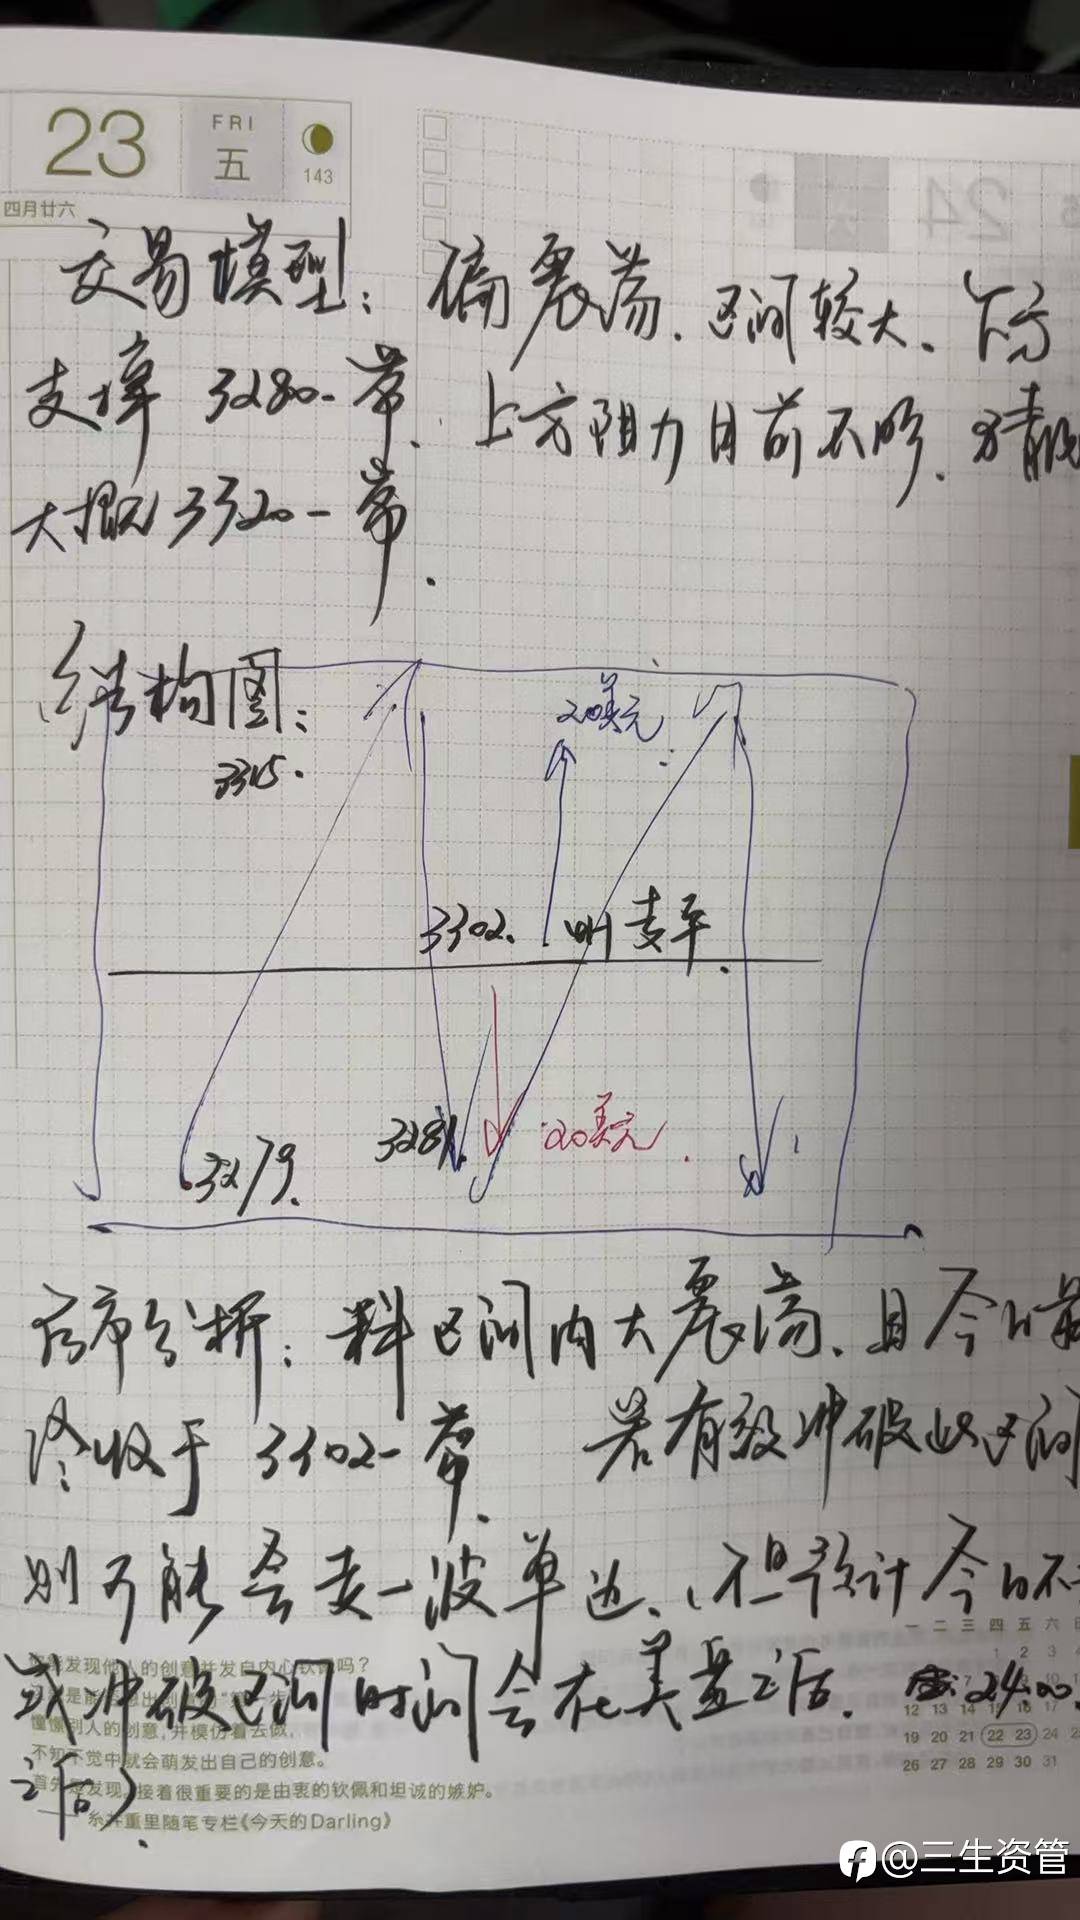 23
FRI
五
143
四月廿六
24
交易模型: 偏震荡. 区间较大. 下方
支撑 3280一带. 上方阻力目前不明. 猜测
大概 3320一带.
结构图:
3315.
20美元
3302.
3279.
3281.
20美元
后市分析: 料区间内大震荡. 且今日最
终收于 3302一带. 若有效冲破此区间
则可能会走一波单边. (但预计今日不
或冲破区间时间会在美盘之后. 24:00.
之后).
一 二 三 四 五 六
1 2 3
12 13 14 15 16 17
19 20 21 22 23 24
26 27 28 29 30 31
不知不觉中就会萌发出自己的创意。
接着很重要的是由衷的钦佩和坦诚的嫉妒。
糸井重里随笔专栏《今天的Darling》
@三生资管